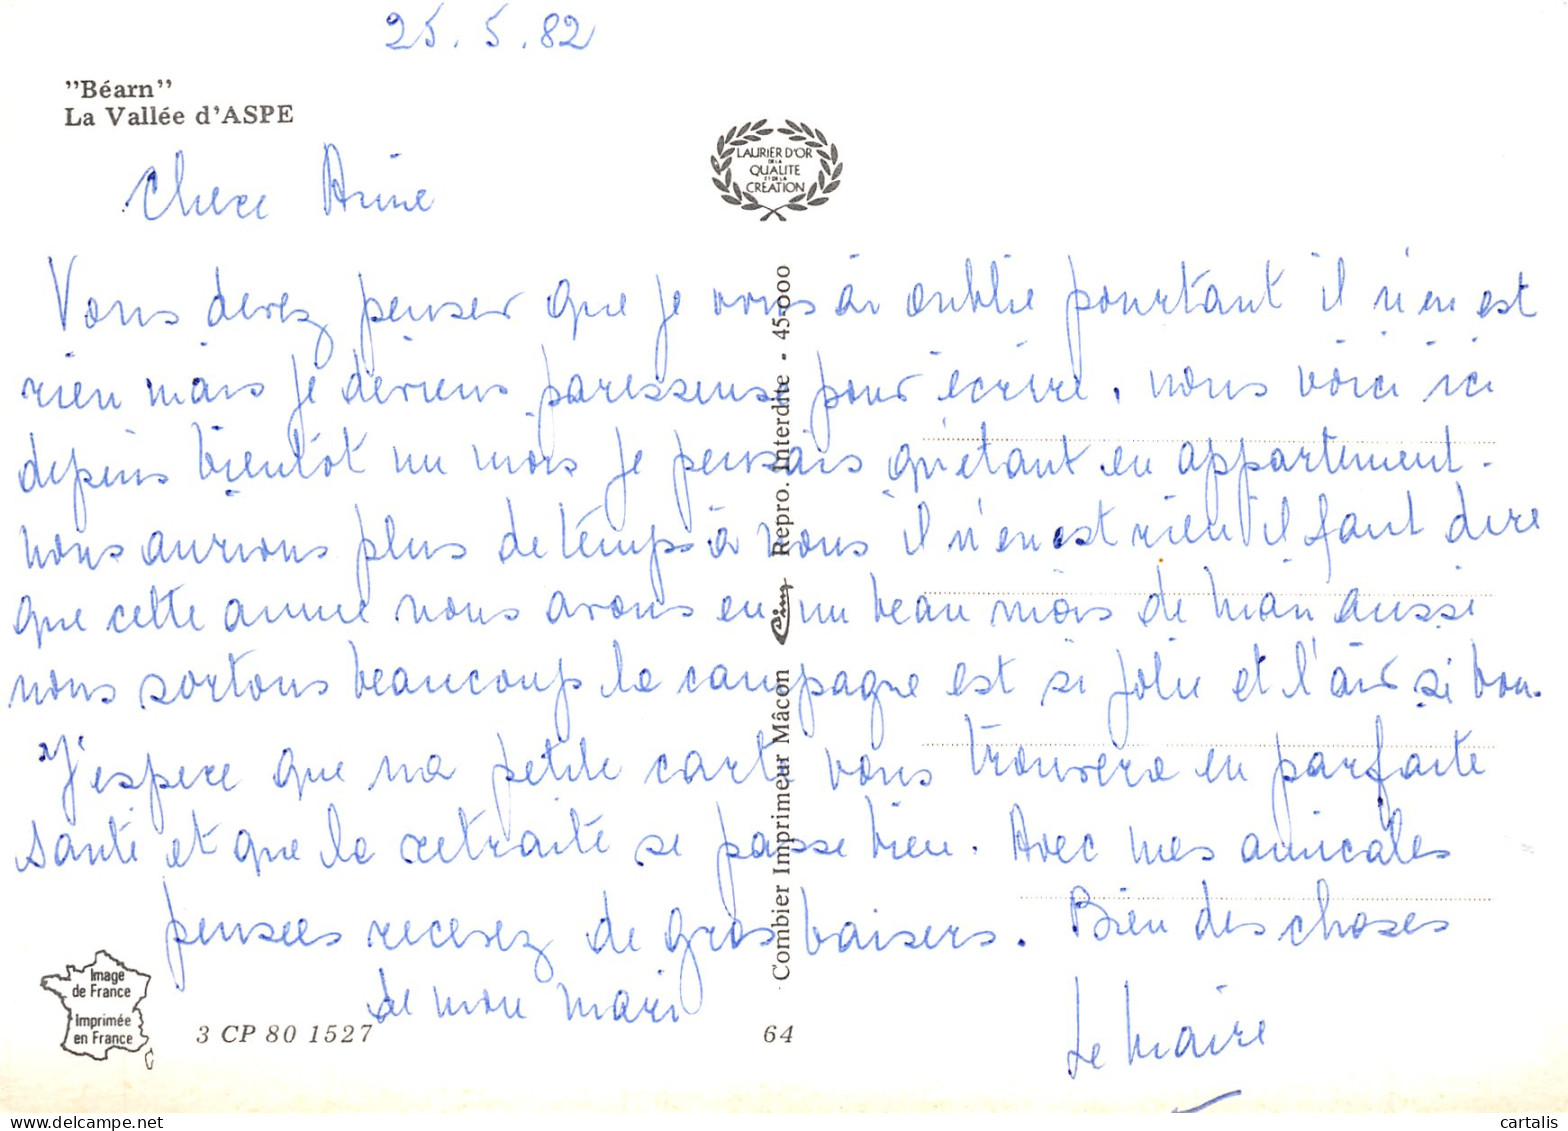 25.5.82
"Béarn"
La Vallée d'ASPE
LAURIER D'OR
DE LA
QUALITE
ET DE LA
CREATION
Chere Amie
Vous devez penser que je vous ai oublie pourtant il n'en est
rien mais je deviens paresseuse pour écrire. nous voici ici
depuis bientôt un mois je pensais qu'etant en appartement.
nous aurions plus de temps à nous il n'en est rien il faut dire
que cette annee nous avons eu un beau mois de mai aussi
nous sortons beaucoup la campagne est si jolie et l'air si bon.
J'espere que ma petite carte vous trouvera en parfaite
santé et que la retraite se passe bien. Avec mes amicales
pensees recevez de gros baisers. Bien des choses
de mon mari
Le Maire
Combier Imprimeur Mâcon Cim Repro. Interdite - 45-000
Image
de France
Imprimée
en France
3 CP 80 1527
64
cartalis